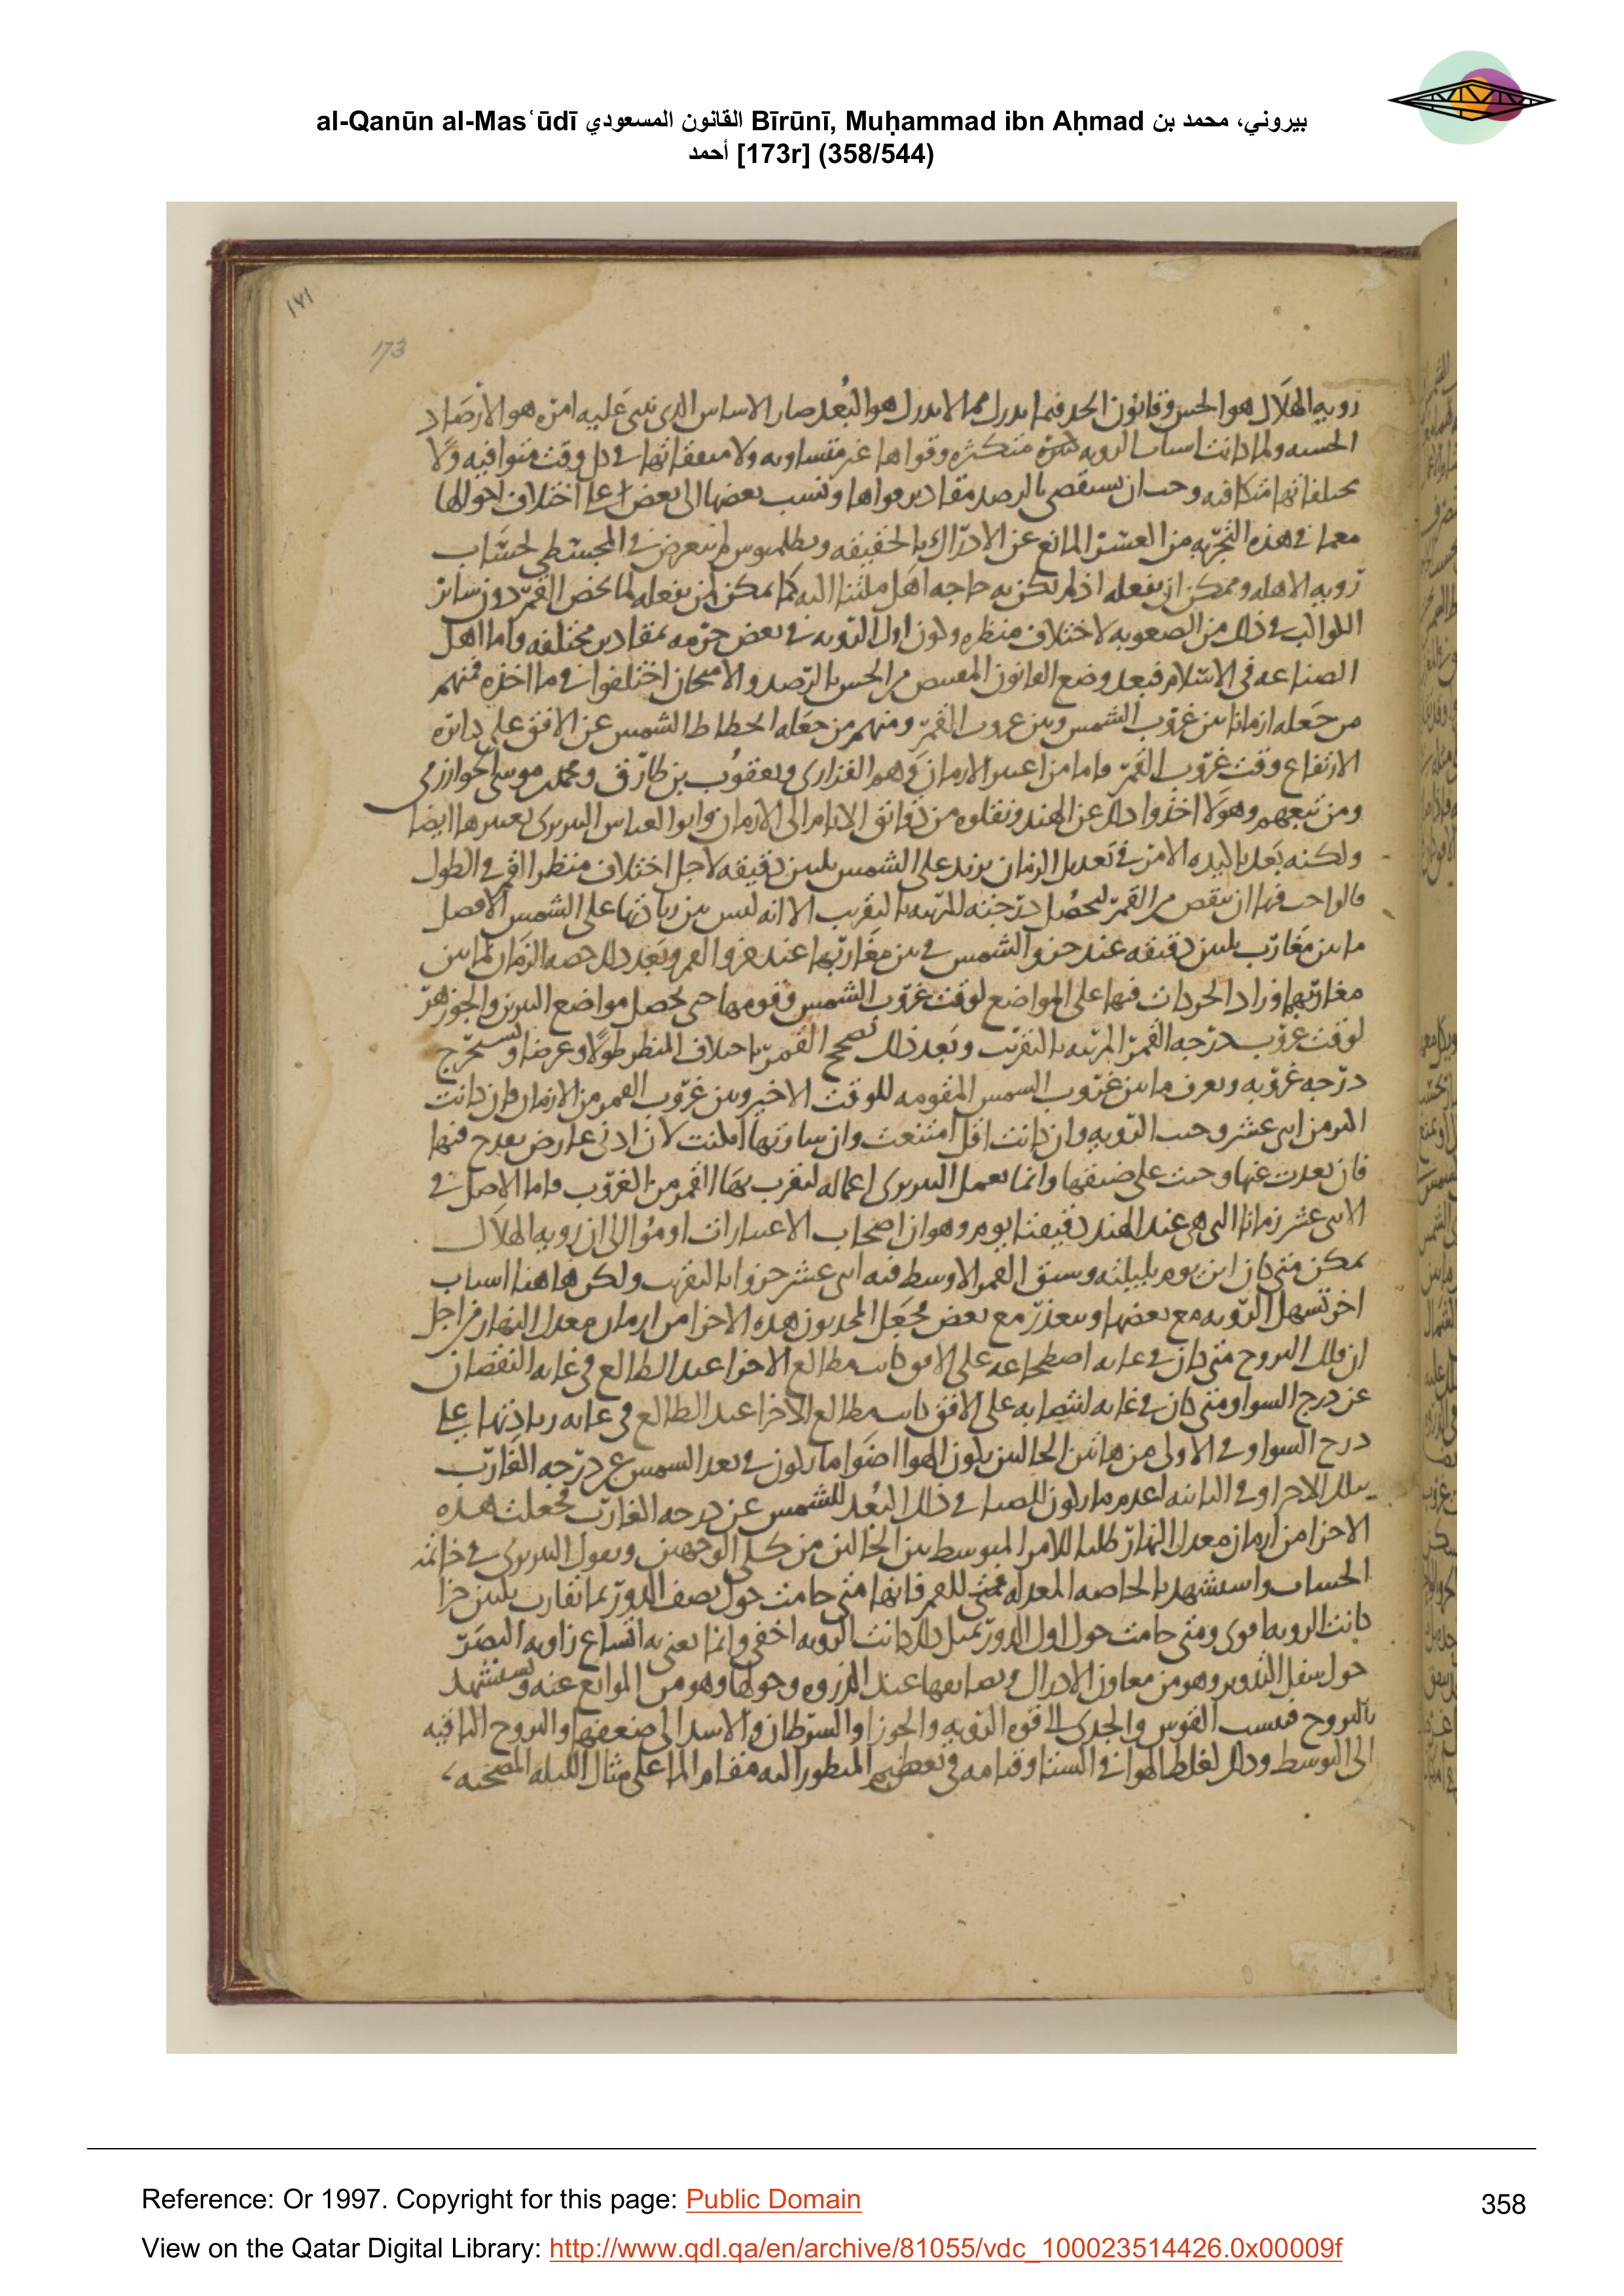 al-Qanūn al-Masʿūdī القانون المسعودي Bīrūnī, Muḥammad ibn Aḥmad بيروني، محمد بن
أحمد [173r] (358/544)
١٧١
173
رويه الهلال هو الحس وقانون الحد فيما يدرك مما لا يدرك هو البعد صار الاساس الذى نبنى عليه امره هو الارصاد
الحسيه ولما كانت اسباب الرويه كثيرة متكثره وقواها غير متساويه ولا متفقاتها فى كل وقت متوافيه ولا
مختلفاتها متكافيه وجب ان يستقصى بالرصد مقادير قواها وننسب بعضها الى بعض على اختلاف احوالها
معما فى هذه التجربه من العسر المانع عن الادراك بالحقيقه وبطلميوس لم يتعرض فى المجسطى لحساب
رويه الاهله وممكن ان يفعله اذ لم يكن به حاجه اهل ملتنا اليه كما يمكن ان يفعله لما يخص القمر دون سائر
الكواكب فى ذلك من الصعوبه لاختلاف منظره وكون اول الرويه فى بعض جرمه بمقادير مختلفه واما اهل
الصناعه فى الاسلام فبعد وضع القانون المقتبس من الحس بالرصد والامتحان اختلفوا فى ما اخذه فمنهم
من جعله ازمانا بين غروب الشمس وبين غروب القمر ومنهم من جعله انحطاط الشمس عن الافق على دائره
الارتفاع وقت غروب القمر فاما من اعتبر الازمان فهم الفزارى ويعقوب بن طارق ومحمد موسى الخوارزمى
ومن تبعهم وهولا اخذوا ذلك عن الهند ونقلوه من دقائق الايام الى الازمان وابو العباس النيريزى يعتبرها ايضا
ولكنه بعد الامر فى تعديل الزمان يزيد على الشمس ثلثين دقيقه لاجل اختلاف منظر القمر فى الطول
فالواجب فيها ان ينقص من القمر ليحصل درجته المرئيه بالتقريب الا انه ليس بين زيادتها على الشمس الافصل
ما بين مغارب ثلثين دقيقه عند جزو الشمس فى بين مغاربها عند جزو القمر وبعد ذلك حصه الزمان لما بين
مغاربهما وزاد الحركات فيها على المواضع لوقت غروب الشمس وقومها حتى يحصل مواضع النيرين والجوزهر
لوقت غروب درجه القمر المرئيه بالتقريب وبعد ذلك تصحح القمر باختلاف المنظر طولا وعرضا ويستخرج
درجه غروبه ويعرف ما بين غروب الشمس المقومه للوقت الاخير وبين غروب القمر من الازمان فان كانت
اكثر من اثنى عشر وجب الرويه وان كانت اقل امتنعت وان ساوتها امكنت لان ادنى عارض يقدح فيها
فان بعدت عنها وجبت على ضيقها وانما يعمل النيريزى اعماله لتقرب بها القمر من الغروب فاما الاصل فى
الاثنى عشر زمانا التى هى عند الهند دقيقتا يوم وهو ان اصحاب الاعتبارات اوموا الى ان رويه الهلال
ممكن متى كان ابن يوم بليلته وسبق القمر الاوسط فيه اثنى عشر جزوا بالتقريب ولكن هاهنا اسباب
اخر تسهل الرويه مع بعضها وتتعذر مع بعض فجعل المحدثون هذه الاجزا من ازمان معدل النهار من اجل
ان فلك البروج متى كان فى غايه اضطجاعه على الافق كانت مطالع الاجزا عند الطالع فى غايه النقصان
عن درج السوا ومتى كان فى غايه انتصابه على الافق كانت مطالع الاجزا عند الطالع فى غايه زيادتها على
درج السوا وفى الاولى من هاتين الحالتين يكون الهوا اضوا ما يكون فى بعد الشمس عن درجه الغارب
بتلك الاجزا وفى الثانيه اعدم ما يكون للضيا فى ذلك البعد للشمس عن درجه الغارب فجعلت هذه
الاجزا من ازمان معدل النهار طلبا للامر المتوسط بين الحالين من كلى الوجهين ويقول النيريزى فى خاتمه
الحساب واستشهد بالخاصه المعدله للقمر فانها متى حامت حول نصف الدور بما تقارب ثلثين جزا
كانت الرويه اقوى ومتى حامت حول اول الدور بمثل ذلك كانت الرويه اخفى وانما يعنى به اتساع زاويه البصر
حول سفل التدوير وهو من معاون الادراك وتضايقها عند الذروه وحولها وهو من الموانع عنه ويستشهد
بالبروج فينسب القوس والجدى الى قوه الرويه والجوزا والسرطان والاسد الى ضعفها والبروج الباقيه
الى التوسط وذلك لغلظ الهوا فى الشتا وقيامه فى تعظيم المنظور اليه مقام الما على مثال الليله المصحيه
Reference: Or 1997. Copyright for this page: Public Domain
358
View on the Qatar Digital Library: http://www.qdl.qa/en/archive/81055/vdc_100023514426.0x00009f